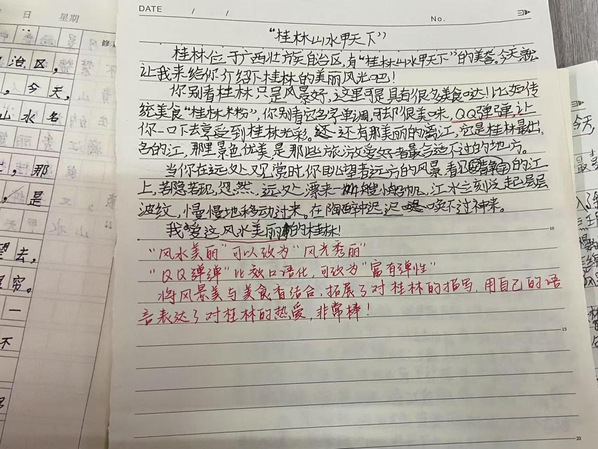 日 星期
DATE / /
No.
“桂林山水甲天下”
桂林位于广西壮族自治区,有“桂林山水甲天下”的美誉,今天就
让我来给你介绍下桂林的美丽风光吧!
你别看桂林只是风景好,这里可是具有很多美食哒!比如传
统美食“桂林米粉”,你别看它名字单调,可却很美味,QQ弹弹,让
你一口下去享受到桂林光彩,还有那美丽的漓江,它是桂林最出
名的江,那里景色优美是那些旅游爱好者最合适不过的地方。
当你在远处观赏时,你眺望着远方的风景看
的江
上,若隐若现,忽然,远处漂来一
江水立刻泛起层层
波纹,慢慢地移动过来。在陶醉中迟迟
不过神来。
我爱这风水美丽的桂林!
“风水美丽”可以改为“风光秀丽”
“QQ弹弹”比较口语化,可改为“富有弹性”
将风景美与美食有结合,拓展了对桂林的描写,用自己的语
言表达了对桂林的热爱,非常棒!
治区,
今天,
水名
那
是
去,
穷。
一
不
今天